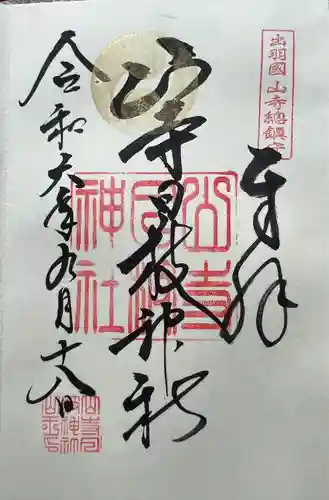 出羽國 山寺總鎮守
奉拝
山寺日枝神社
山寺日枝神社
令和六年九月十八日